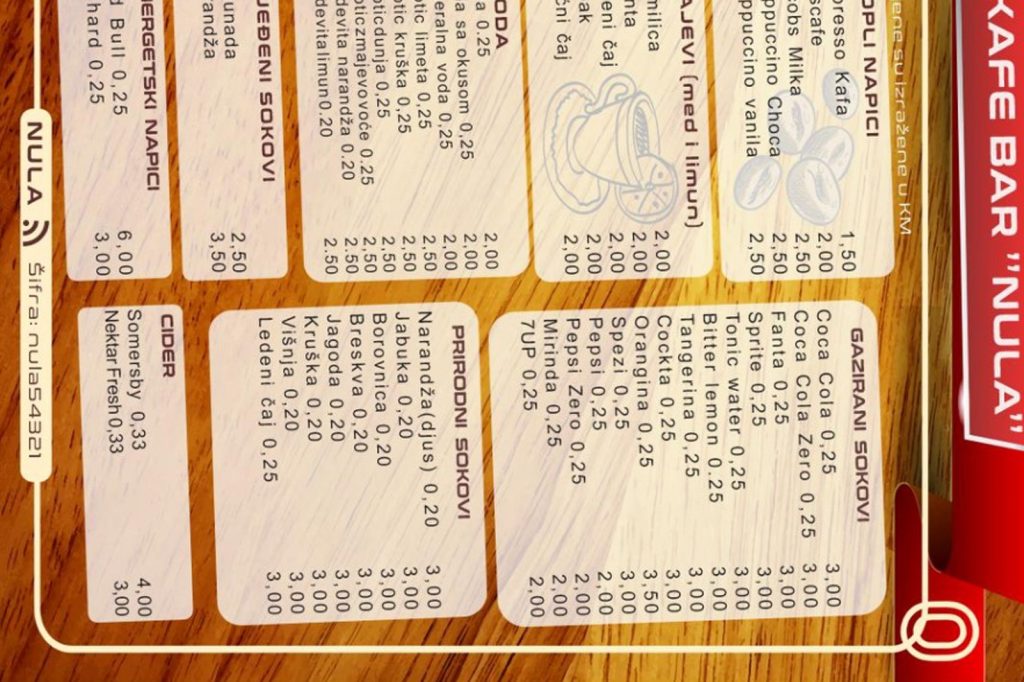 KAFE BAR "NULA"
ene su izražene u KM
OPLI NAPICI
presso Kafa 1,50
scafe 2,00
cobs Milka 2,50
ppuccino Choca 2,50
ppuccino vanila 2,50
AJEVI (med i limun)
milica 2,00
nta 2,00
eni čaj 2,00
ak 2,00
čni čaj 2,00
ODA
a 0.25 2,00
a sa okusom 0,25 2,00
eralna voda 0,25 2,00
ptic limeta 0,25 2,50
ptic kruška 0,25 2,50
pticdunja 0,25 2,50
pticzmajevovoće 0.25 2,50
devita narandža 0.20 2,50
devitalimun0.20 2,50
JEĐENI SOKOVI
unada 2,50
randža 3,50
NERGETSKI NAPICI
d Bull 0,25 6,00
hard 0,25 3,00
GAZIRANI SOKOVI
Coca Cola 0,25 3,00
Coca Cola Zero 0,25 3,00
Fanta 0,25 3,00
Sprite 0,25 3,00
Tonic water 0,25 3,00
Bitter lemon 0.25 3,00
Tangerina 0,25 3,00
Cockta 0,25 3,00
Orangina 0,25 3,50
Spezi 0,25 3,00
Pepsi 0,25 2,00
Pepsi Zero 0,25 2,00
Mirinda 0,25 2,00
7UP 0,25 2,00
PRIRODNI SOKOVI
Narandža(djus) 0,20 3,00
Jabuka 0,20 3,00
Borovnica 0,20 3,00
Breskva 0,20 3,00
Jagoda 0,20 3,00
Kruška 0,20 3,00
Višnja 0,20 3,00
Ledeni čaj 0,25 3,00
CIDER
Somersby 0,33 4,00
NektarFresh0,33 3,00
NULA Šifra: nula54321